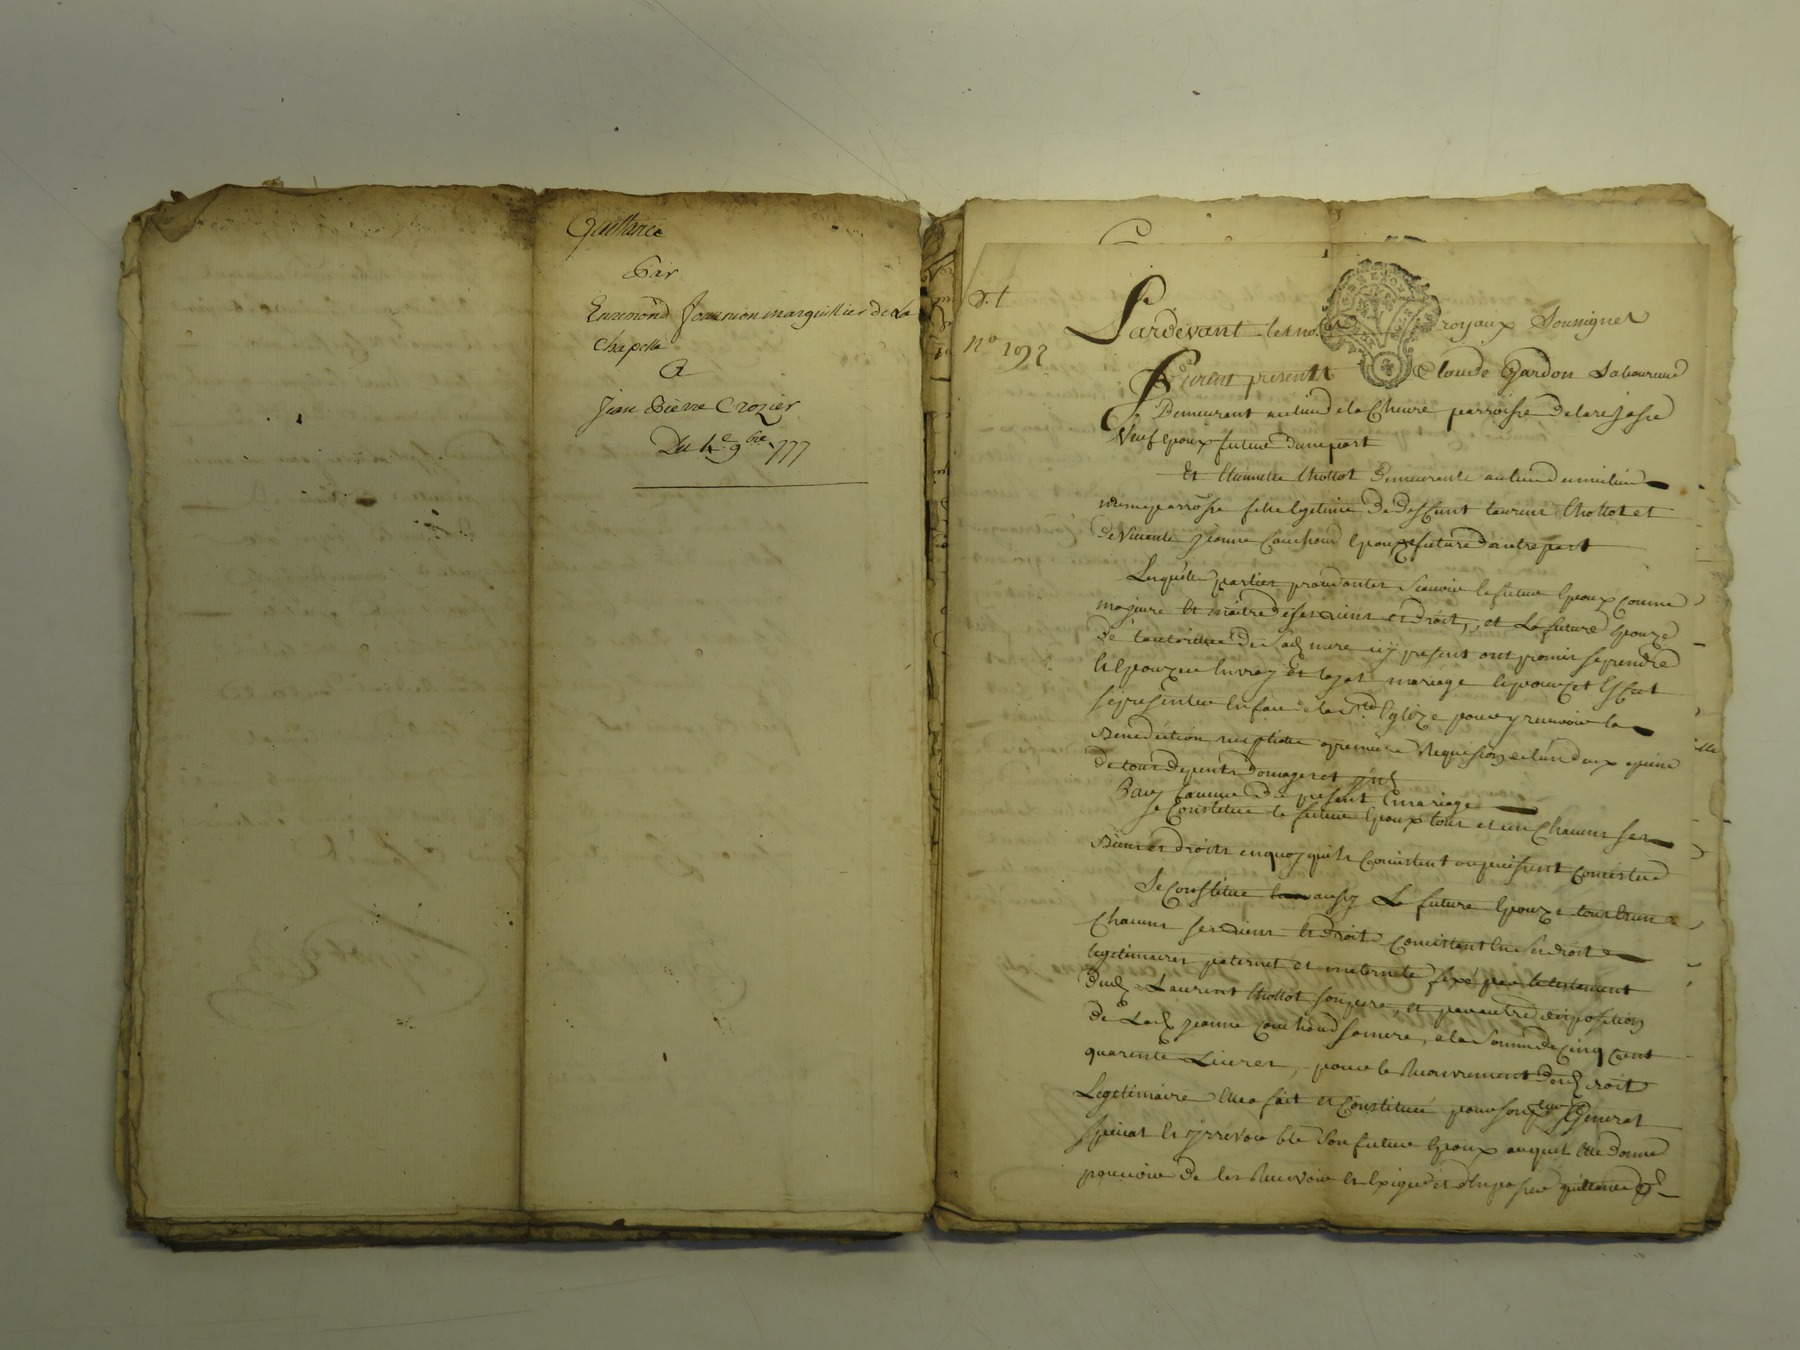 Quittance
Par
Ennemond Journion marguillier de La
Chapelle
A
Jean Pierre Crozier
Du 4e 9bre 1777
D. t
no 1092
Pardevant les no royaux Soussignes
Furent présents Claude Gardon Laboureur
Demeurant au lieu de la Cheure parroisse de larejasse
Veuf Epoux futur dune part
Et thollot Demeurante au lieu du milieu
meme parroisse fille legitime de deffunt laurent thollot et
de vivante jeanne Epouze future dautre part
Lesquelles parties procedantes scavoir le futur Epoux comme
majeure et maitre de ses biens et droit, et La future Epouze
de lautorité de Sad mere icy present ont promis se prendre
et Epouzer en vray et legal mariage et
se presenter en face de la Ste Eglize pour y recevoir la
Benediction nuptiale a premiere Requisition de lun deux a peine
de tous depents domages et
En faveur du present mariage
se Constitue le futur Epoux tous et un Chacuns ses
Biens et droits en quoy quils Consistent ou puissent Consister
Se Constitue aussy La future Epouze tous et un
Chacuns ses Biens et Droits Consistant en ses droits
legitimaires paternel et maternels fixé par le testament
dud Laurent thollot son pere, et par autre disposition
de Lad jeanne sa mere, a la Somme de Cinq Cent
quarente Livres, pour le Recouvrement desd droit
Legitimaire Elle a fait et Constitué pour son General
special et jrrevocable Son futur Epoux auquel Elle donne
pouvoir de les Recevoir et Exiger et den passer quittance